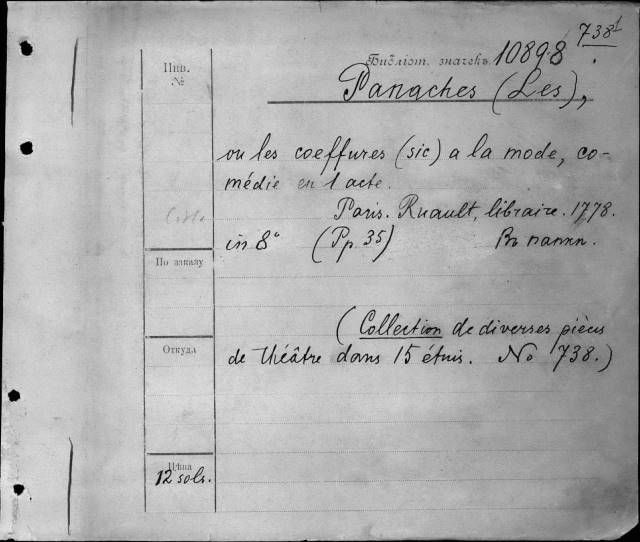 738¹
Инв.
№
Библіот. значекъ 10898.
Panaches (Les),
ou les coeffures (sic) a la mode, co-
médie en 1 acte.
Paris. Ruault, libraire. 1778.
in 8° (Pp 35) Въ папки.
По заказу
(Collection de diverses pièces
Откуда
de théâtre dans 15 étuis. No 738.)
Цѣна
12 sols.